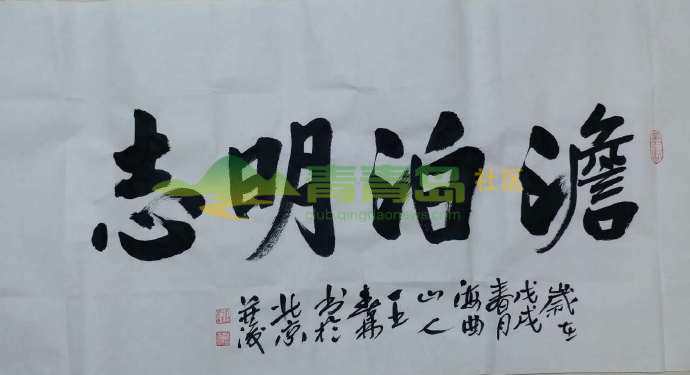 澹泊明志
歲在
戊戌
春月
海曲
山人
王
森
书於
北京
青青岛社区
club.qingdaonews.com